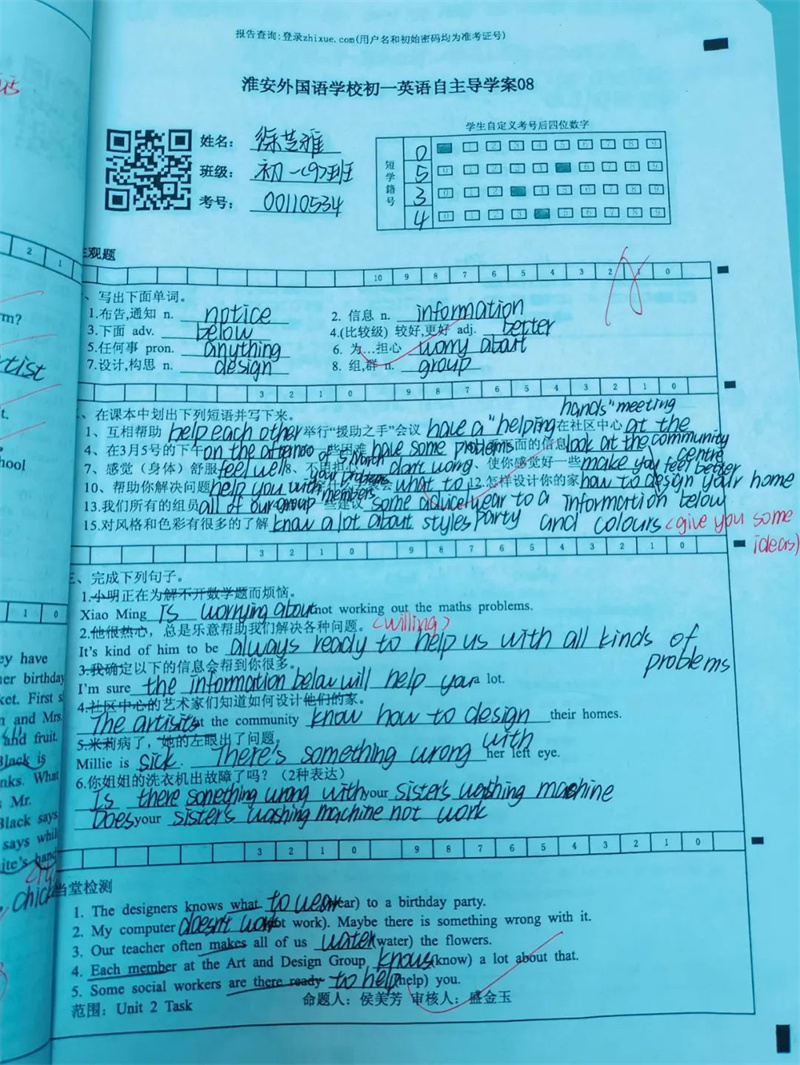 报告查询:登录zhixue.com(用户名和初始密码均为准考证号)
淮安外国语学校初一英语自主导学案08
学生自定义考号后四位数字
姓名: 徐芝雅
班级: 初一(9)班
考号: 00110534
短学籍号
0
5
3
4
主观题
2 1
10 9 8 7 6 5 4 3 2 1 0
、写出下面单词。
1.布告,通知 n. notice 2. 信息 n. information
3.下面 adv. below 4.(比较级) 较好,更好 adj. better
5.任何事 pron. anything 6. 为…担心 worry about
7.设计,构思 n. design 8. 组,群 n. group
3 2 1 0 9 8 7 6 5 4 3 2 1 0
、在课本中划出下列短语并写下来。
hands" meeting
1、互相帮助 help each other 举行“援助之手”会议 have a "helping 在社区中心 at the
4、在3月5号的下午 on the afternoon of 5 March 些困难 have some problems 下面的信息 look at the community centre
7、感觉(身体)舒服 feel well 8、不用担心 don't worry 使你感觉好一些 make you feel better
10、帮助你解决问题 help you with your problems what to 12.怎样设计你的家 how to design your home
13.我们所有的组员 all of our group members 一些建议 some advice year to a information below
15.对风格和色彩有很多的了解 know a lot about styles party and colours (give you some
ideas)
3 2 1 0 9 8 7 6 5 4 3 2 1 0
三、完成下列句子。
1.小明正在为解不开数学题而烦恼。
Xiao Ming is worrying about not working out the maths problems.
2.他很热心，总是乐意帮助我们解决各种问题。 (willing)
It's kind of him to be always ready to help us with all kinds of
problems
3.我确定以下的信息会帮到你很多。
I'm sure the information below will help you a lot.
4.社区中心的艺术家们知道如何设计他们的家。
The artisits at the community know how to design their homes.
5.米莉病了，她的左眼出了问题。
Millie is sick. There's something wrong with her left eye.
6.你姐姐的洗衣机出故障了吗？（2种表达）
Is there something wrong with your sister's washing machine
Does your sister's washing machine not work
3 2 1 0 9 8 7 6 5 4 3 2 1 0
当堂检测
1. The designers knows what to wear(ear) to a birthday party.
2. My computer doesn't work(ot work). Maybe there is something wrong with it.
3. Our teacher often makes all of us water(water) the flowers.
4. Each member at the Art and Design Group knows(know) a lot about that.
5. Some social workers are there ready to help(help) you.
范围: Unit 2 Task 命题人：侯美芳 审核人：盛金玉
rm?
rtist
t.
hool
1 0
ey have
her birthday
ket. First s
n and Mrs
and fruit.
Black is
nks. What
s Mr.
Black says
says while
ite's hand
chick